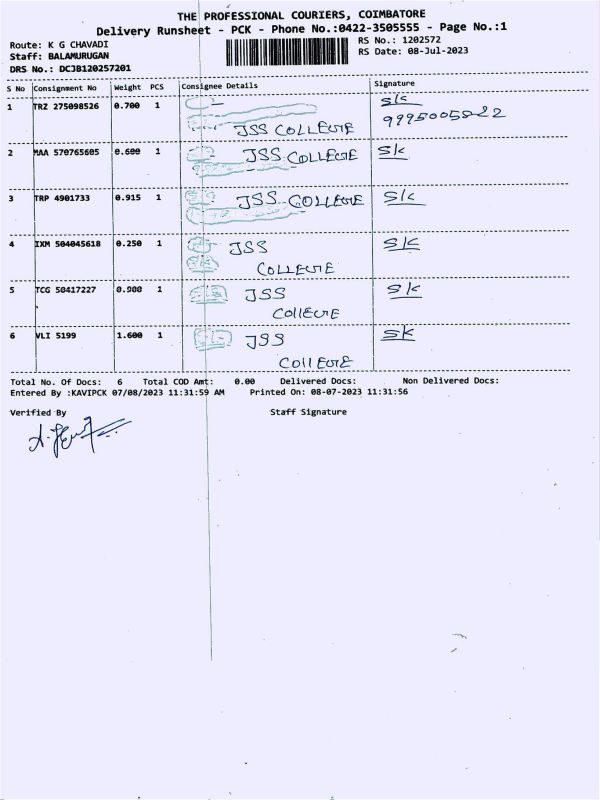 THE PROFESSIONAL COURIERS, COIMBATORE
Delivery Runsheet - PCK - Phone No.:0422-3505555 - Page No.:1
Route: K G CHAVADI
RS No.: 1202572
Staff: BALAMURUGAN
RS Date: 08-Jul-2023
DRS No.: DCJB120257201
S No Consignment No Weight PCS Consignee Details Signature
1 TRZ 275098526 0.700 1 S/K
JSS COLLEGE
2 MAA 570765605 0.600 1 JSS COLLEGE S/K
3 TRP 4901733 0.915 1 JSS COLLEGE S/K
4 IXM 504045618 0.250 1 JSS S/K
COLLEGE
5 TCG 50417227 0.900 1 JSS S/K
COllEGE
6 VLI 5199 1.600 1 JSS SK
COllEGE
Total No. Of Docs: 6 Total COD Amt: 0.00 Delivered Docs: Non Delivered Docs:
Entered By :KAVIPCK 07/08/2023 11:31:59 AM Printed On: 08-07-2023 11:31:56
Verified By Staff Signature